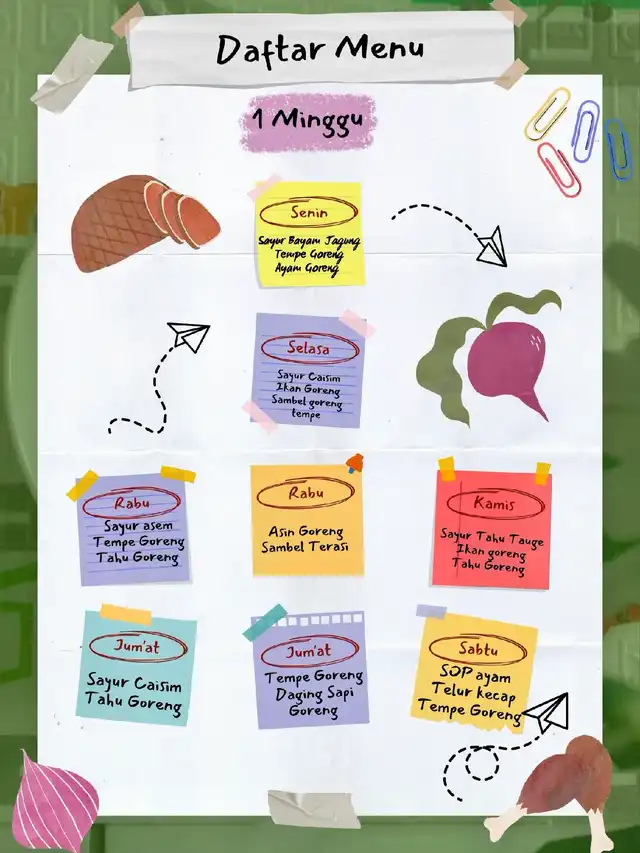 Daftar Menu
1 Minggu
Senin
Sayur Bayam Jagung
Tempe Goreng
Ayam Goreng
Selasa
Sayur Caisim
Ikan Goreng
Sambel goreng
tempe
Rabu
Sayur asem
Tempe Goreng
Tahu Goreng
Rabu
Asin Goreng
Sambel Terasi
Kamis
Sayur Tahu Tauge
Ikan goreng
Tahu Goreng
Jum'at
Sayur Caisim
Tahu Goreng
Jum'at
Tempe Goreng
Daging Sapi
Goreng
Sabtu
SOP ayam
Telur kecap
Tempe Goreng